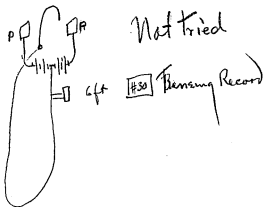 P R Not Tried
6ft #30 Bensing Record